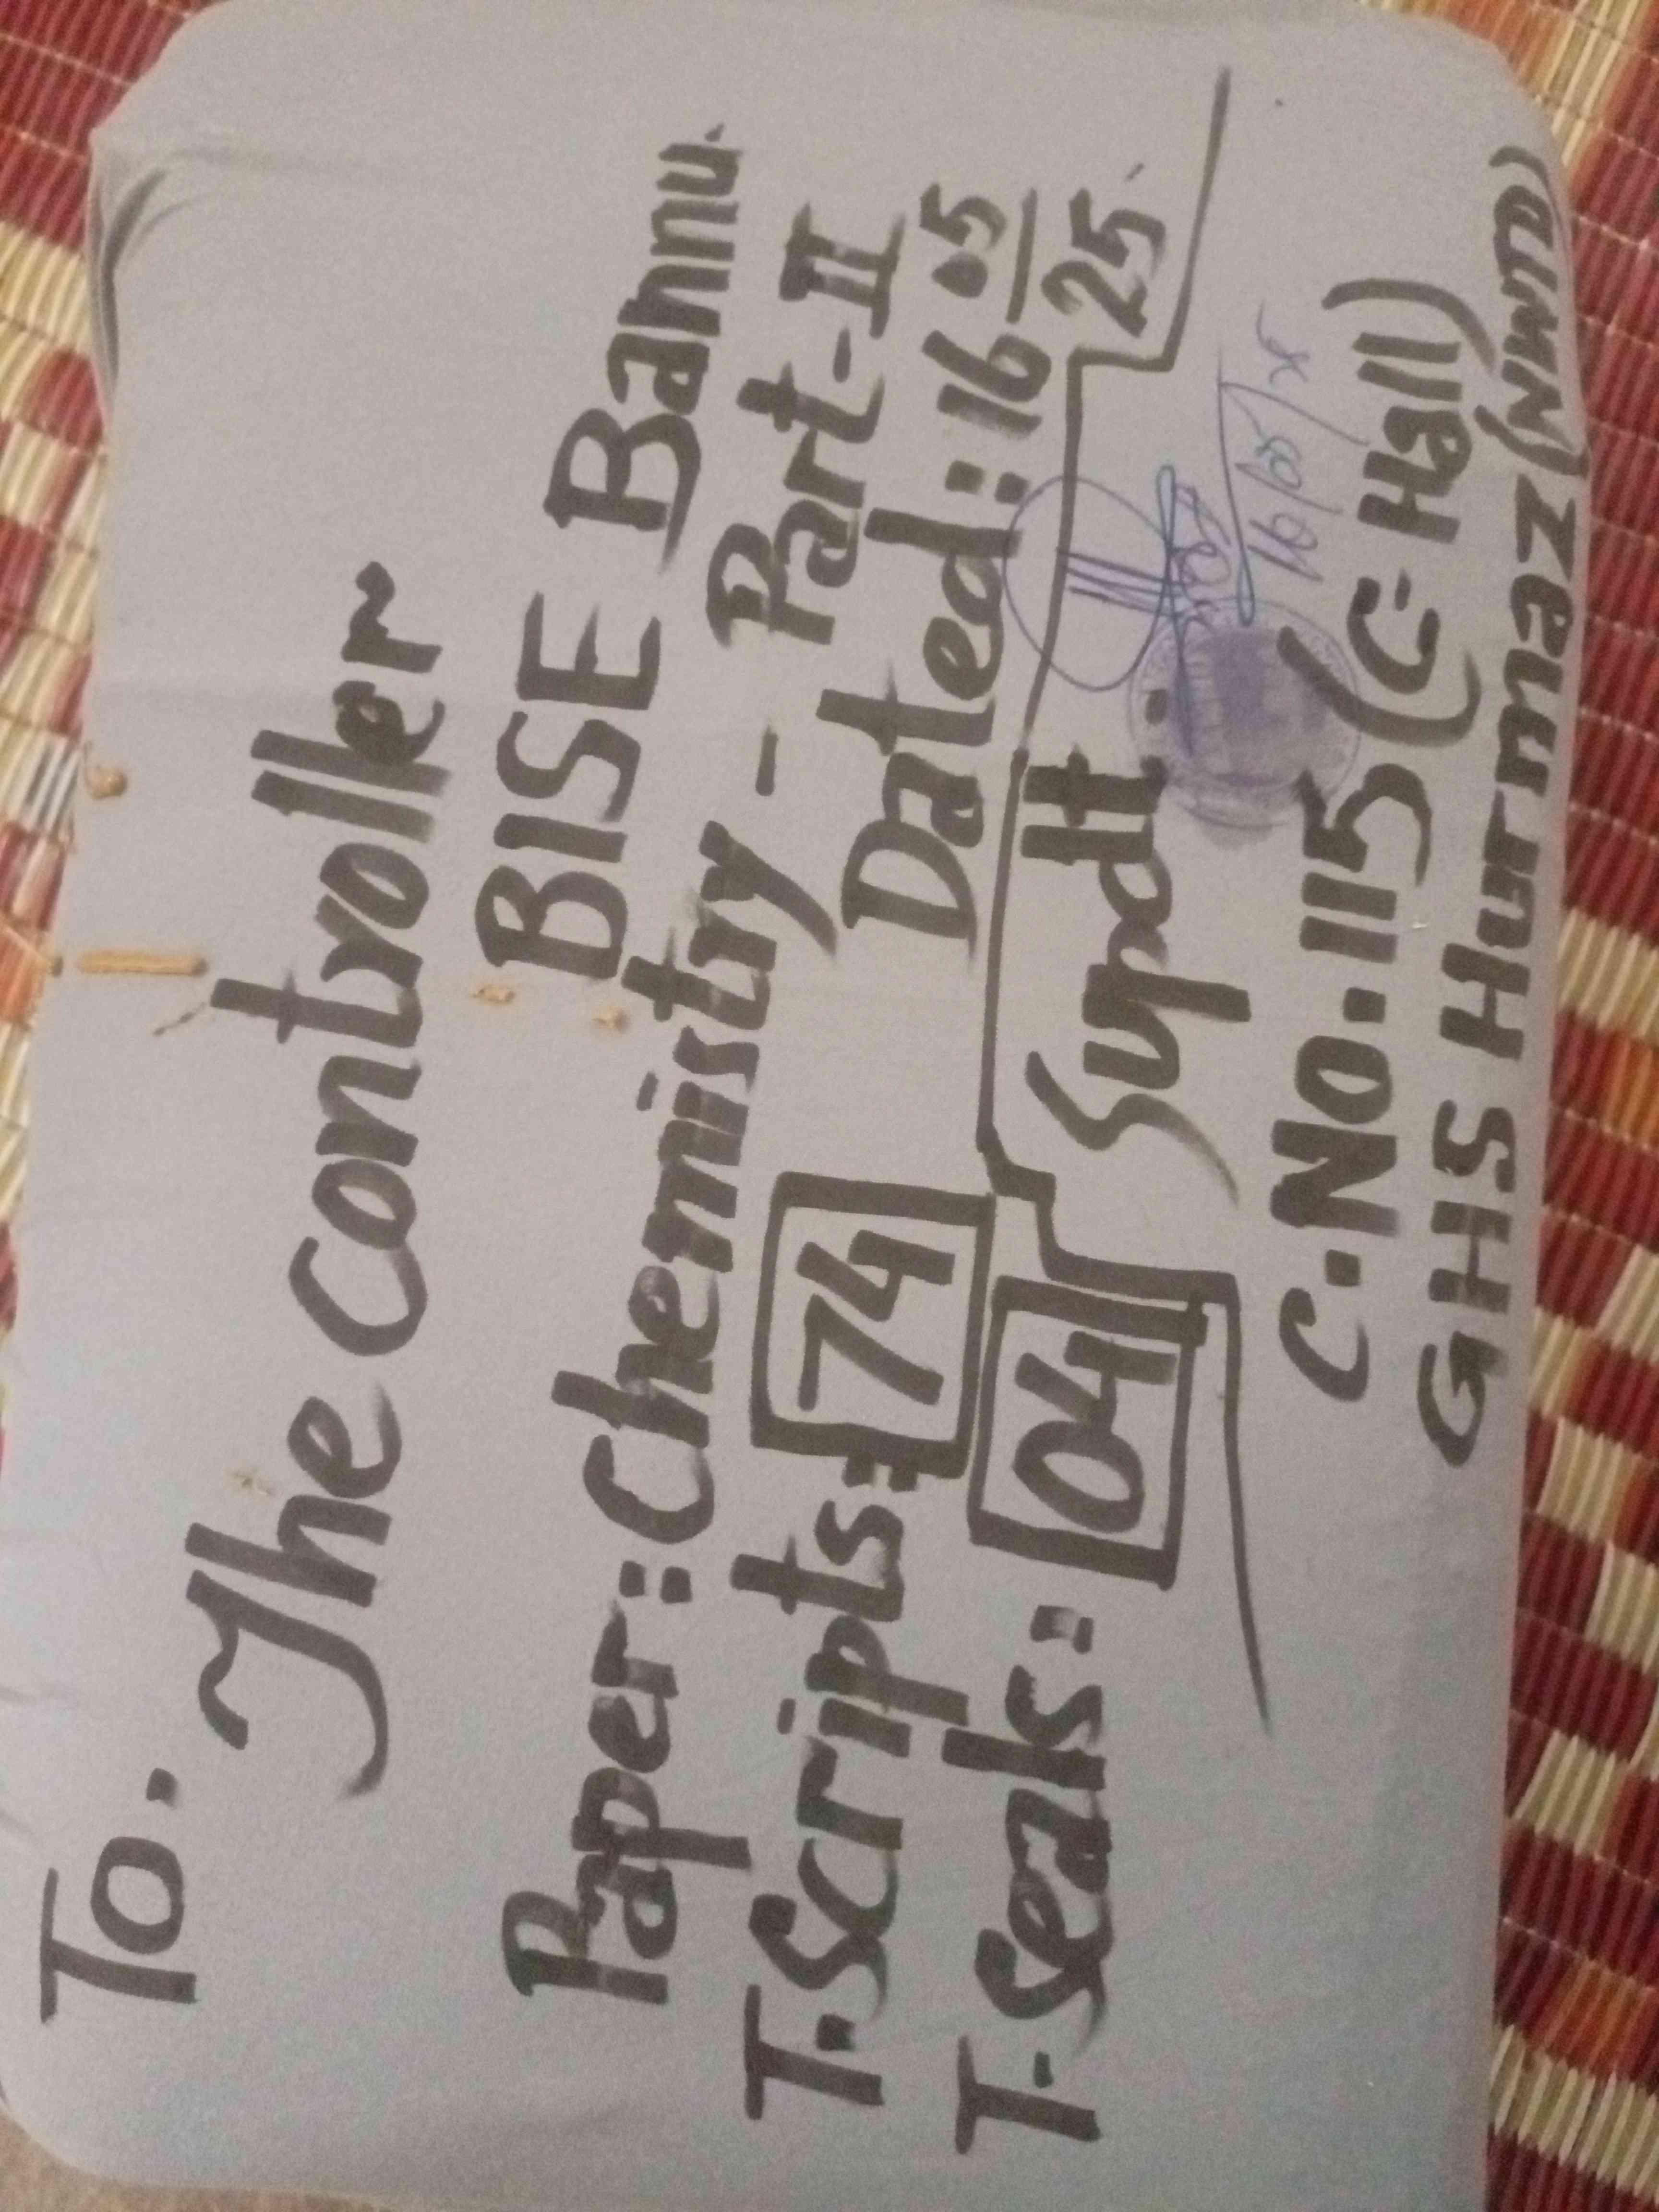 To.
The Controller
BISE Bannu.
Paper: Chemistry - Part-II
T.Scripts: 74 Dated: 16 05/25.
T.Seals: 04
Supdt:
16/05/25
C.No.115 (C-Hall)
GHS Hurmaz (NWTD)